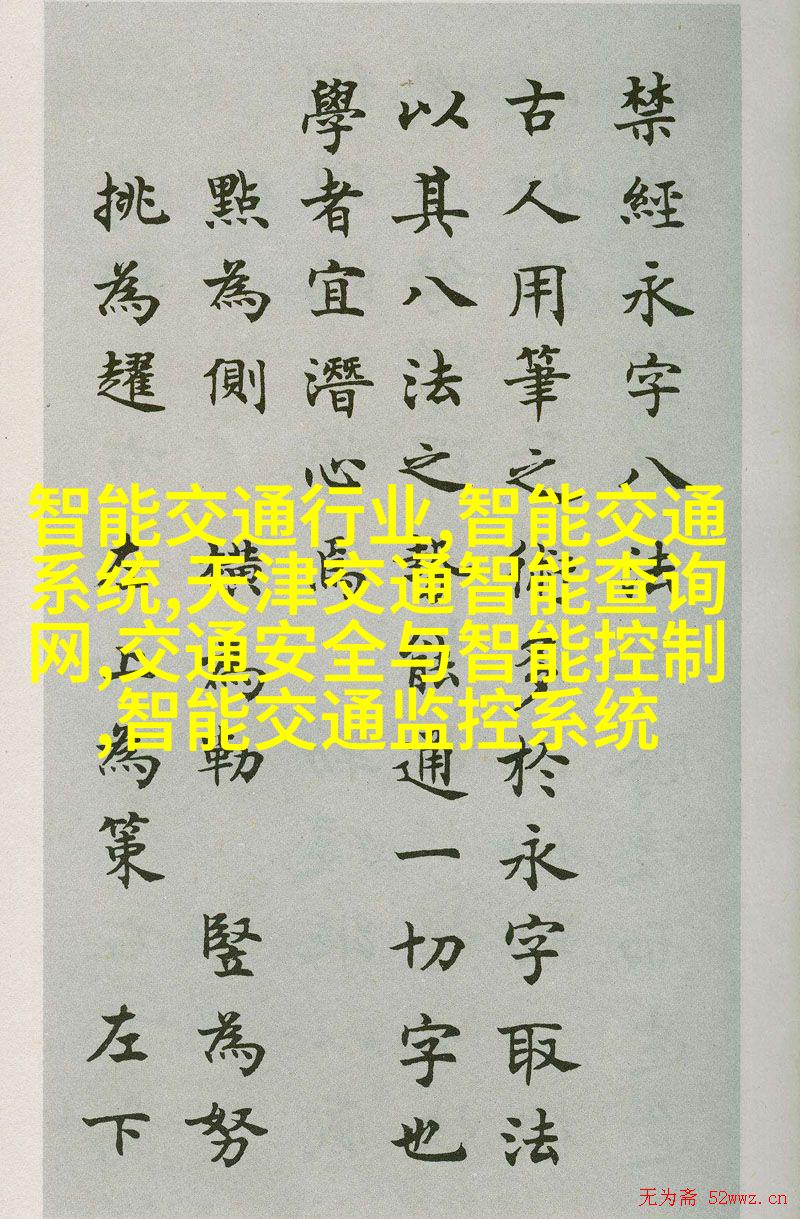 禁經永字八法
古人用筆之術多於永字取法
以其八法之勢能通一切字也
學者宜潛心焉
點為側 橫為勒 竪為努
挑為趯 左上為策 左下
智能交通行业,智能交通
系统,天津交通智能查询
网,交通安全与智能控制
,智能交通监控系统
无为斋 52wwz.cn